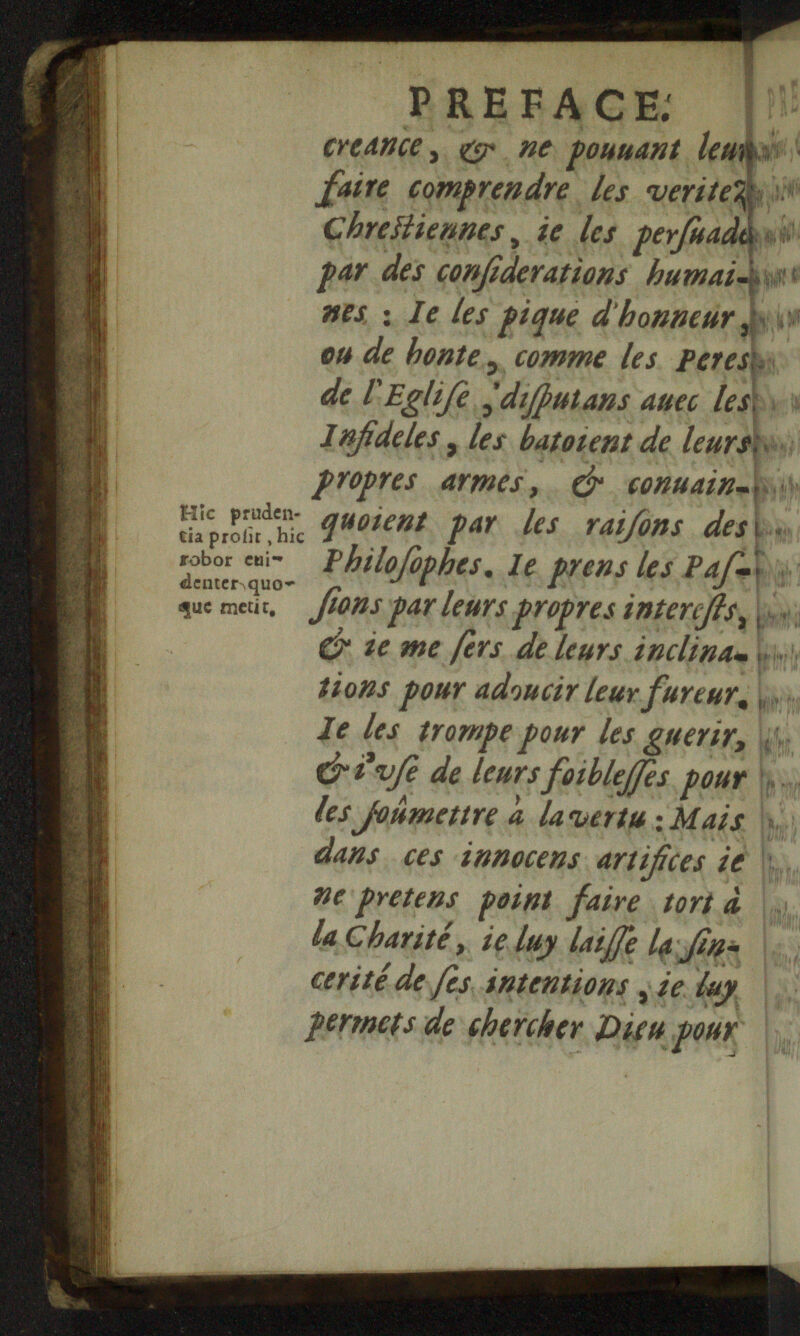 PREFACE.
creance, & ne pouuant leur
faire comprendre les veritez
Chrestiennes, ie les persuade
par des considerations humai-
nes : Ie les pique d'honneur,
ou de honte, comme les Peres
de l'Eglise, disputans auec les
Infideles, les batoient de leurs
propres armes, & conuain-
quoient par les raisons des
Philosophes. Ie prens les Pas-
sions par leurs propres interests,
& ie me sers de leurs inclina-
tions pour adoucir leur fureur.
Ie les trompe pour les guerir,
& i'vse de leurs foiblesses pour
les soûmettre à la vertu : Mais
dans ces innocens artifices ie
ne pretens point faire tort à
la Charité, ie luy laisse la sin-
cerité de ses intentions, ie luy
permets de chercher Dieu pour
Hic pruden-
tia profit, hic
robor eui-
denter, quo-
que metit,